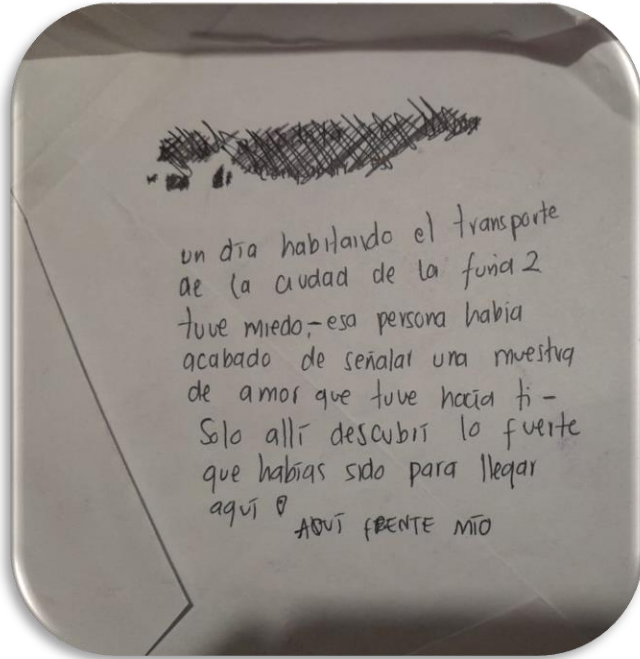 un día habitando el transporte
de la ciudad de la furia 2
tuve miedo,-esa persona había
acabado de señalar una muestra
de amor que tuve hacia ti-
Solo allí descubrí lo fuerte
que habías sido para llegar
aquí
AQUÍ FRENTE MÍO